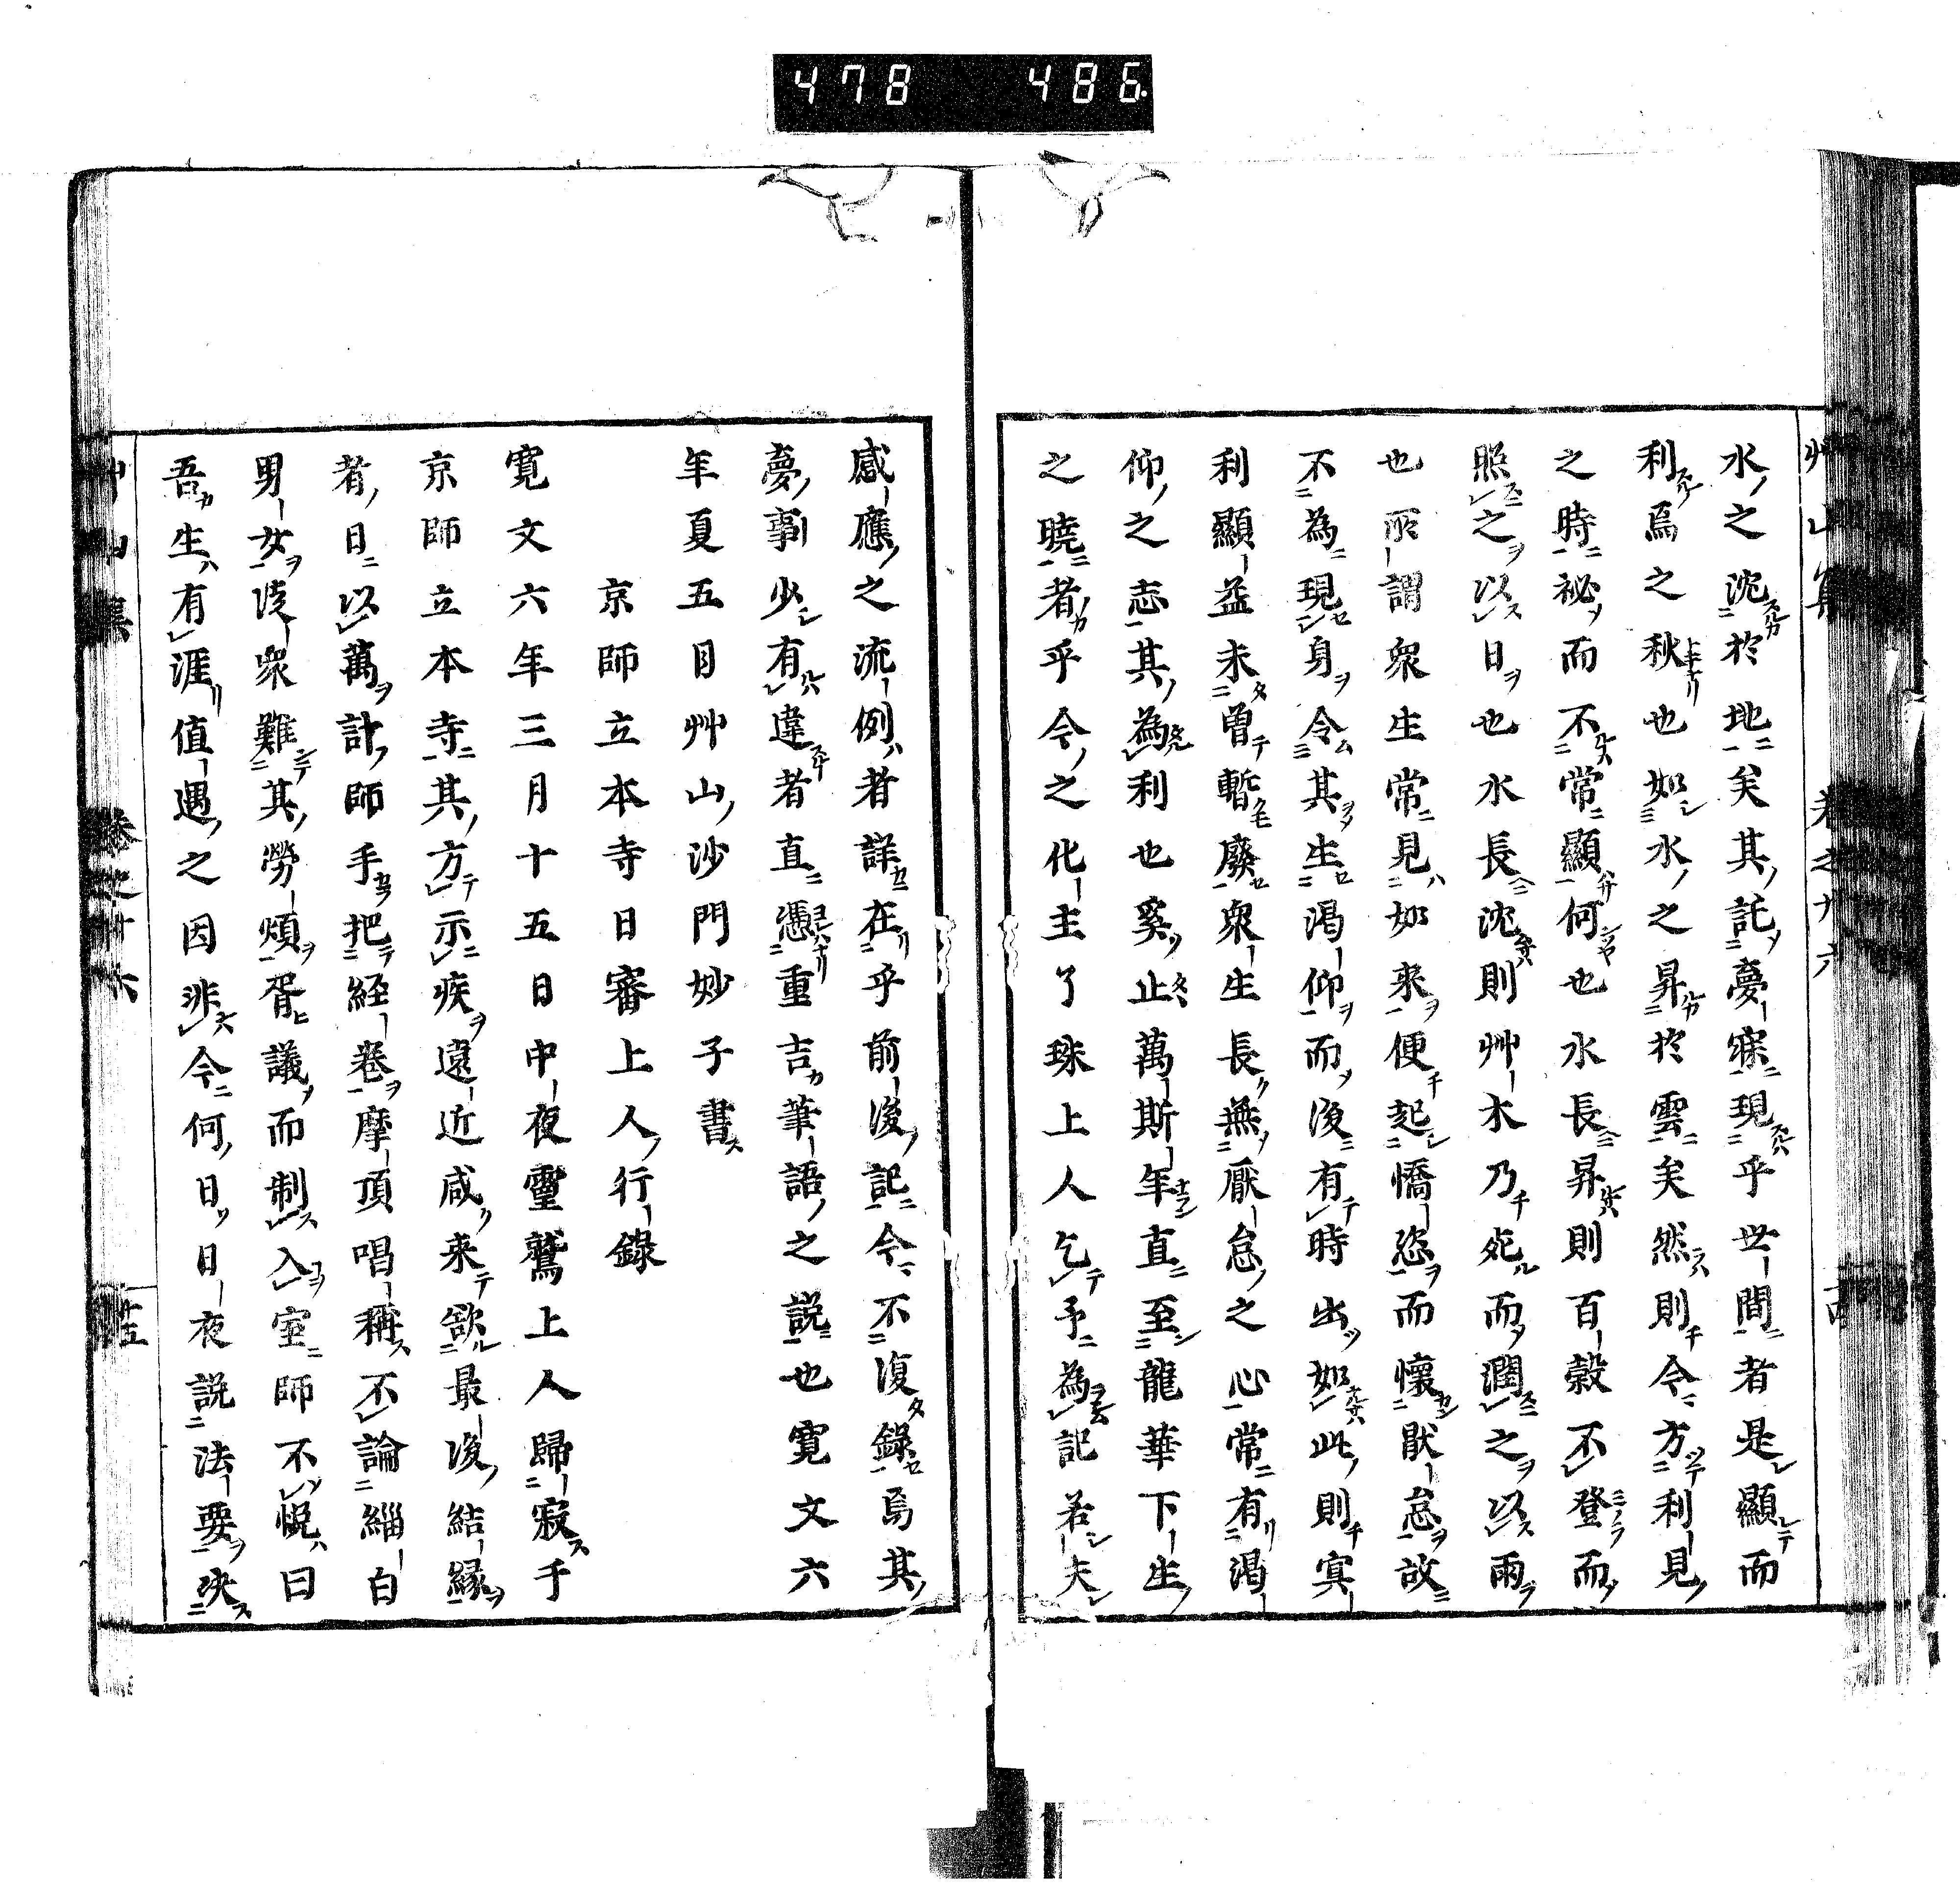 478 486
艸山集 卷之十六 十四
水之沈於地矣其託夢寐現乎世間者是顯而
利焉之秋也如水之昇於雲矣然則今方利見
之時祕而不常顯何也水長昇則百穀不登而
照之以日也水長沈則艸木乃死而潤之以雨
也所謂衆生常見如来便起憍恣而懐厭怠故
不為現身令其生渴仰而後有時出如此則冥
利顯益未曽暫廢衆生長無厭怠之心常有渴
仰之志其為利也奚止萬斯年直至龍華下生
之曉者乎今之化主了珠上人乞予為記若夫
感應之流例者詳在乎前後記今不復錄焉其
夢事少有違者直憑重吉筆語之説也寛文六
年夏五月艸山沙門妙子書
京師立本寺日審上人行錄
寛文六年三月十五日中夜靈鷲上人歸寂于
京師立本寺其方示疾遠近咸来欲最後結縁
者日以萬計師手把経卷摩頂唱稱不論緇白
男女後衆難其勞煩胥議而制入室師不悦曰
吾生有涯值遇之因非今何日日夜説法要決
艸山集 卷之十六 十五